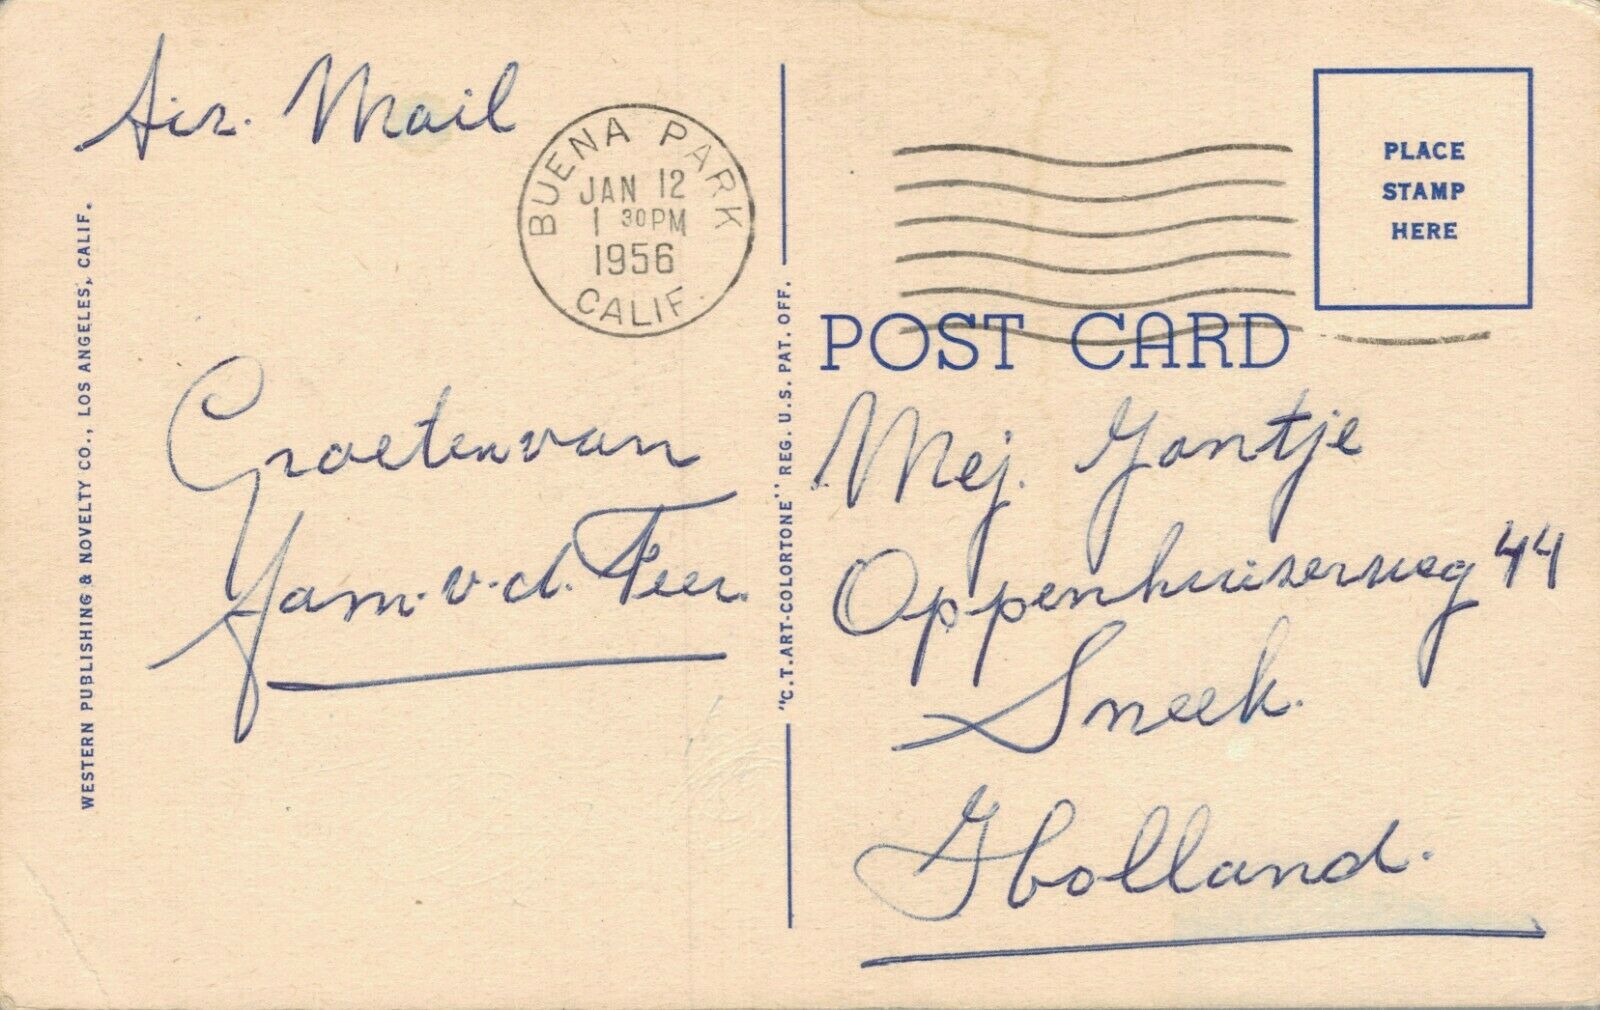 Air. Mail
BUENA PARK
JAN 12
1 30PM
1956
CALIF.
PLACE
STAMP
HERE
POST CARD
Groeten van
Fam. v. d. Feer.
Mej. Jantje
Oppenhuizerweg 44
Sneek.
Holland.
WESTERN PUBLISHING & NOVELTY CO., LOS ANGELES, CALIF.
"C.T. ART-COLORTONE" REG. U.S. PAT. OFF.